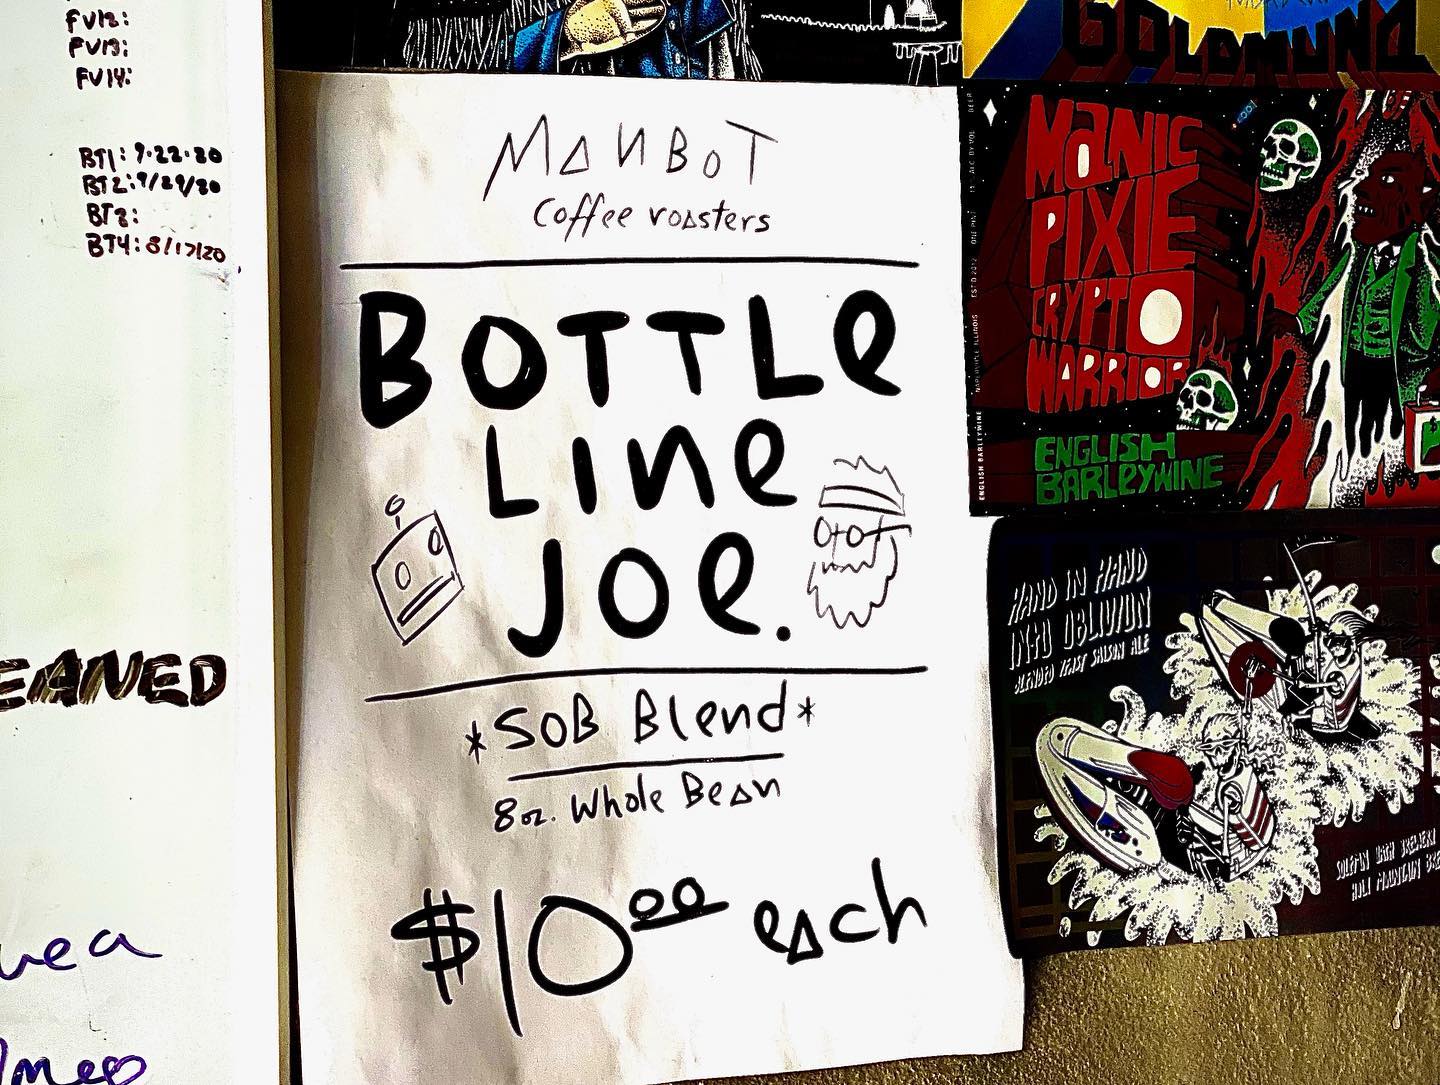 FV12:
FV13:
FV14:
BT1: 9.22.20
BT2: 9/29/20
BT3:
BT4: 8/17/20
EANED
MANBOT
Coffee roasters
BOTTLe
LIne
JOe.
*SOB Blend*
8oz. Whole Bean
$10.00 each
GOLDMUND
MaNIC
PIXIE
CRYPTO
WARRIOR
ENGLISH
BARLeYWINE
ENGLISH BARLEYWINE
NAPERVILLE ILLINOIS
EST'D 2012
ONE PINT
BEER
HAND IN HAND
INTO OBLIVION
BLENDED YEAST SAISON ALE
SOLEMN OATH BREWERY